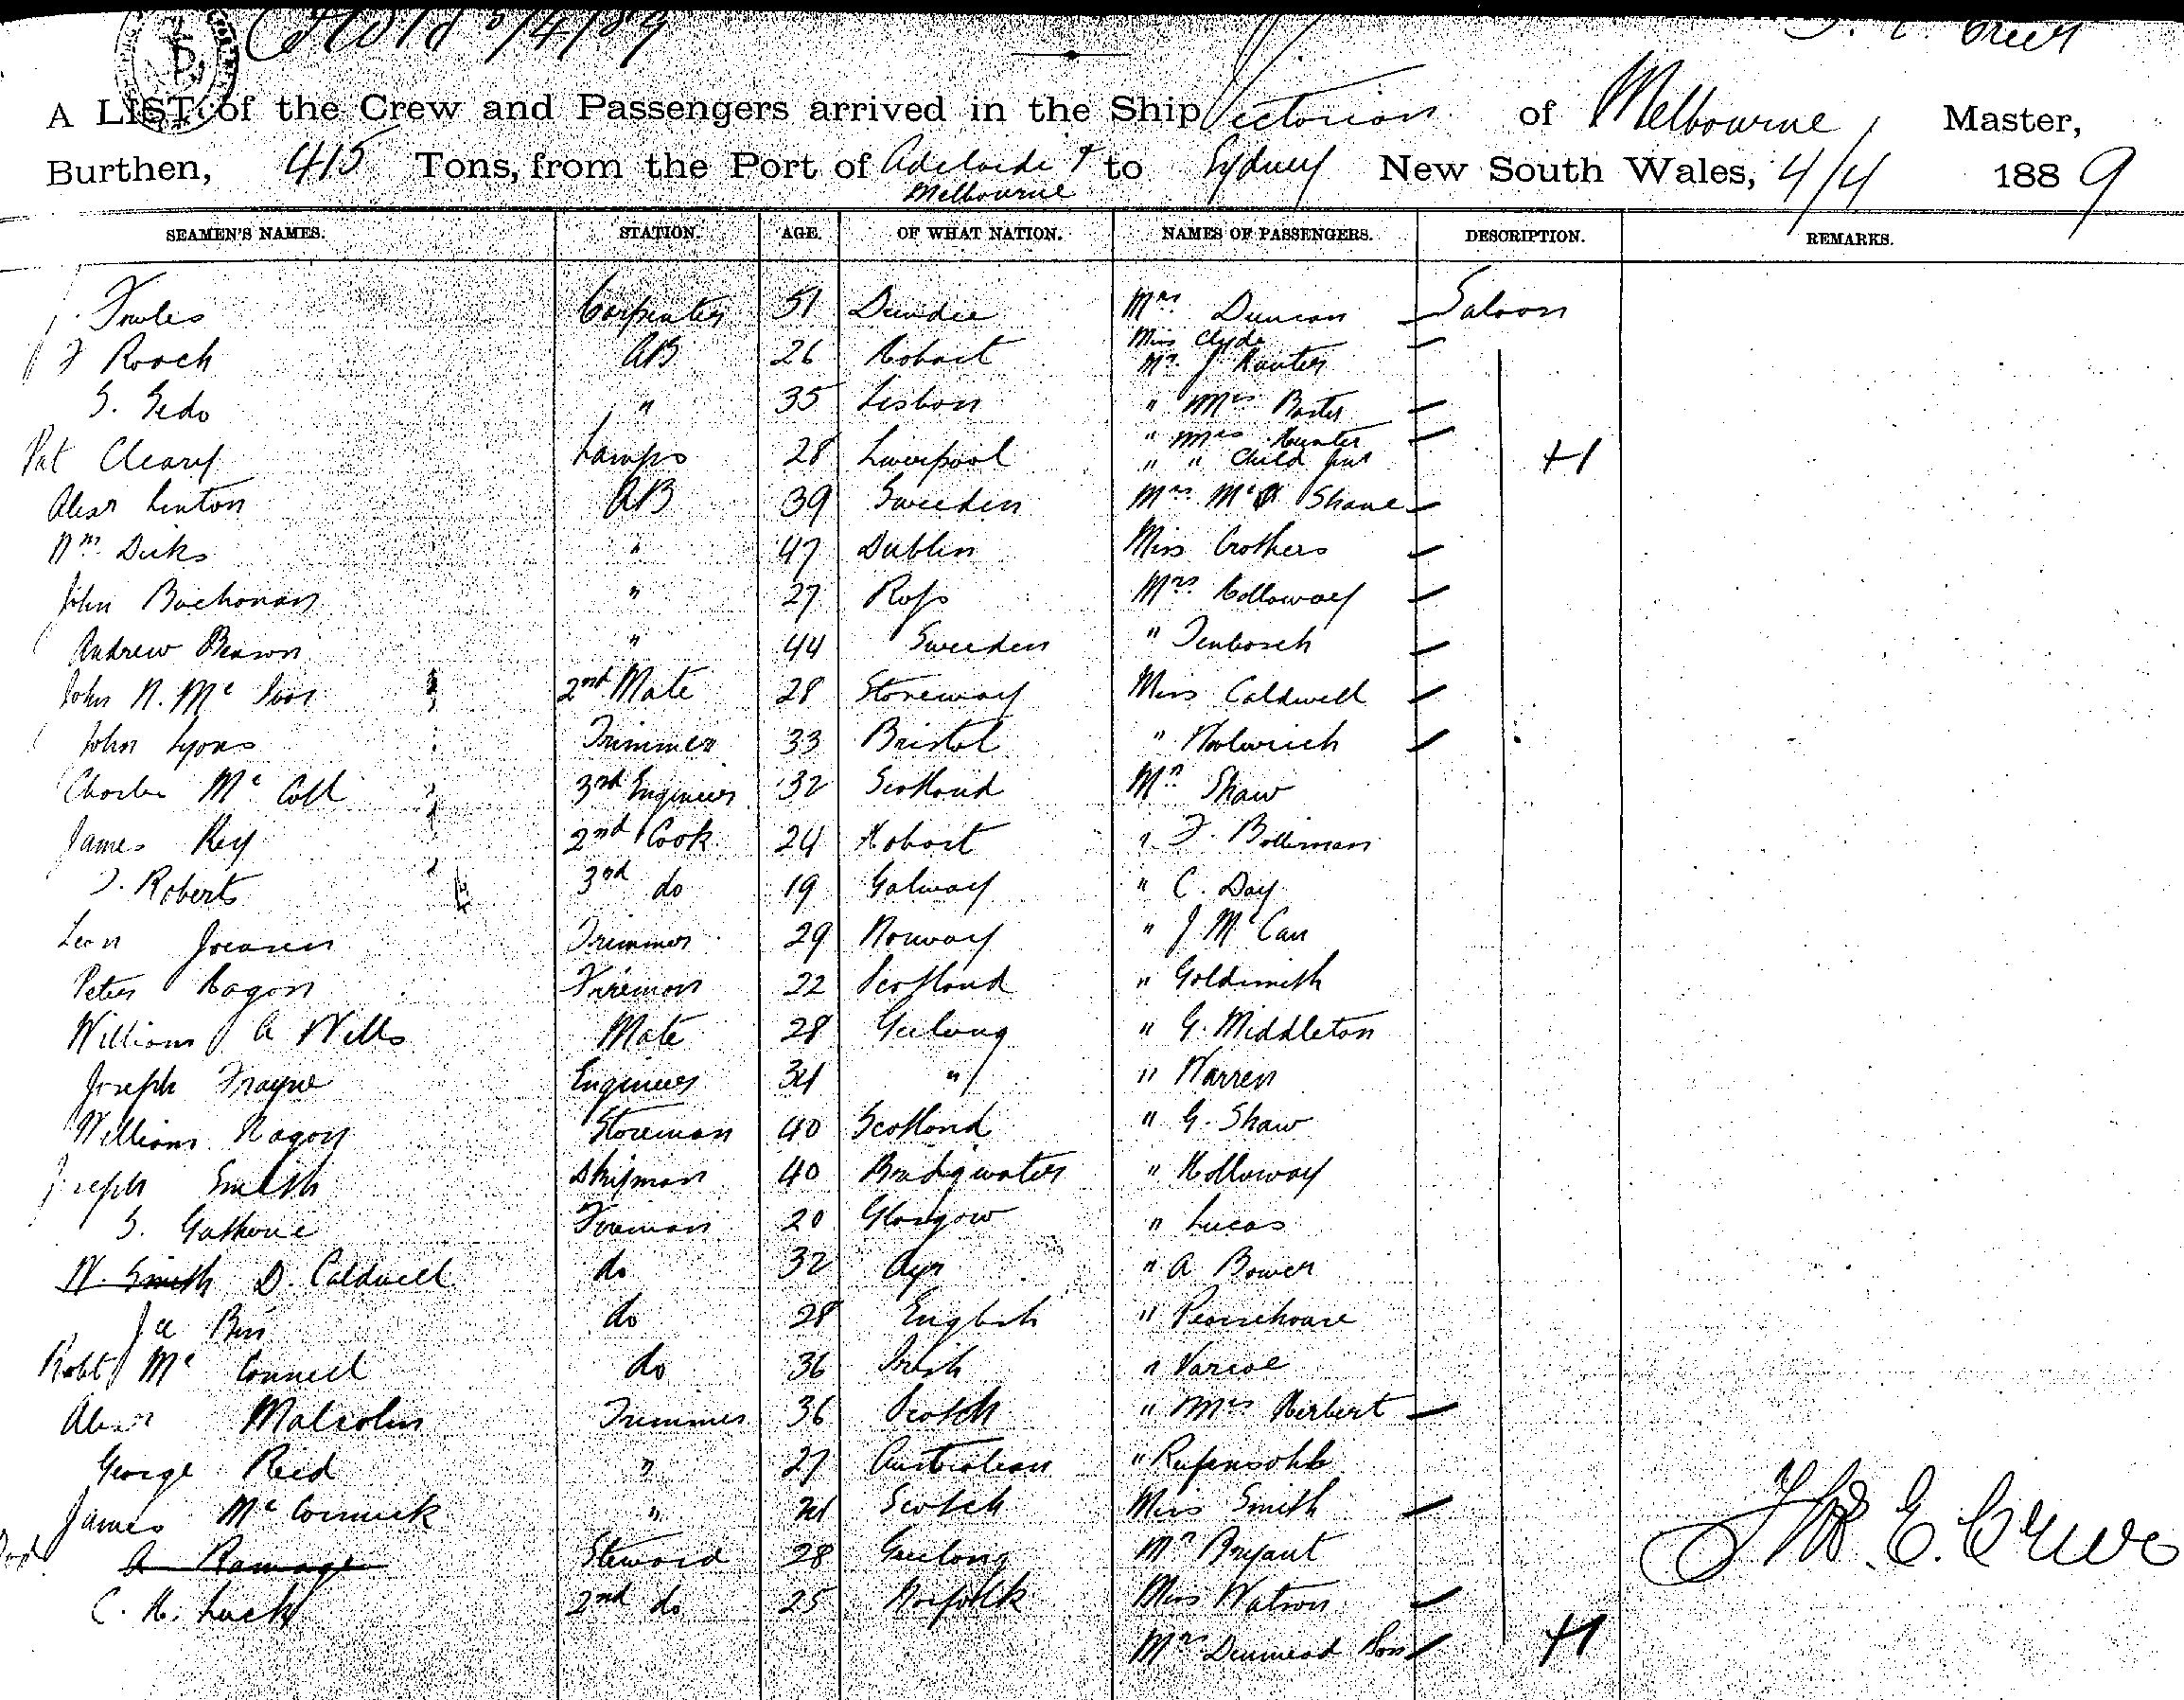 5/4/89
A LIST of the Crew and Passengers arrived in the Ship Victorian of Melbourne, Master,
Burthen, 415 Tons, from the Port of Adelaide & to Sydney New South Wales, 4/4 1889
Melbourne
SEAMEN'S NAMES. STATION. AGE. OF WHAT NATION. NAMES OF PASSENGERS. DESCRIPTION. REMARKS.
Carpenter 51 Dundee Mrs Duncan Saloon
Miss Clyde
Roach AB 26 Hobart Mr J Hunter
S. " 35 Lisbon " Mrs
" Mrs Hunter
Pat Cleary Lamps 28 Liverpool " " Child
Alexr Linton AB 39 Sweeden Mrs Mc Shane
Wm Dicks " 47 Dublin Miss Crothers
John Buchanan " 27 Ross Mrs Holloway
Andrew " 44 Sweeden " Tenbosch
John N. Mc 2nd Mate 28 Stoneway Miss Caldwell
John Lyons Trimmer 33 Bristol " Woolwrich
Charles Mc Coll 3rd Engineer 32 Scotland Mr Shaw
James Key 2nd Cook 24 Hobart " F. Bollerman
Roberts 3rd do 19 Galway " C. Day
Trimmer 29 Norway " J McCan
Peter Hagon Fireman 22 Scotland " Goldsmith
William A Wells Mate 28 Geelong " G. Middleton
Joseph Frayne Engineer 34 " " Warren
William Storeman 40 Scotland " G. Shaw
Joseph Smith 40 Bridgwater " Holloway
S. Fireman 20 Glasgow " Lucas
W. Smith D. Caldwell do 32 Ayr " A Bower
do 28 English "
Robt Mc Connell do 36 Irish " Varcoe
Alexr Malcolm Trimmer 36 Scotch " Mrs Herbert
George Reid " 27 Australian "
James McCormick " Scotch Miss Smith
A Ramage Steward 28 Geelong Mr Bryant
C. H. Luck 2nd do 25 Norfolk Miss Watson
Mrs Dunmead Son